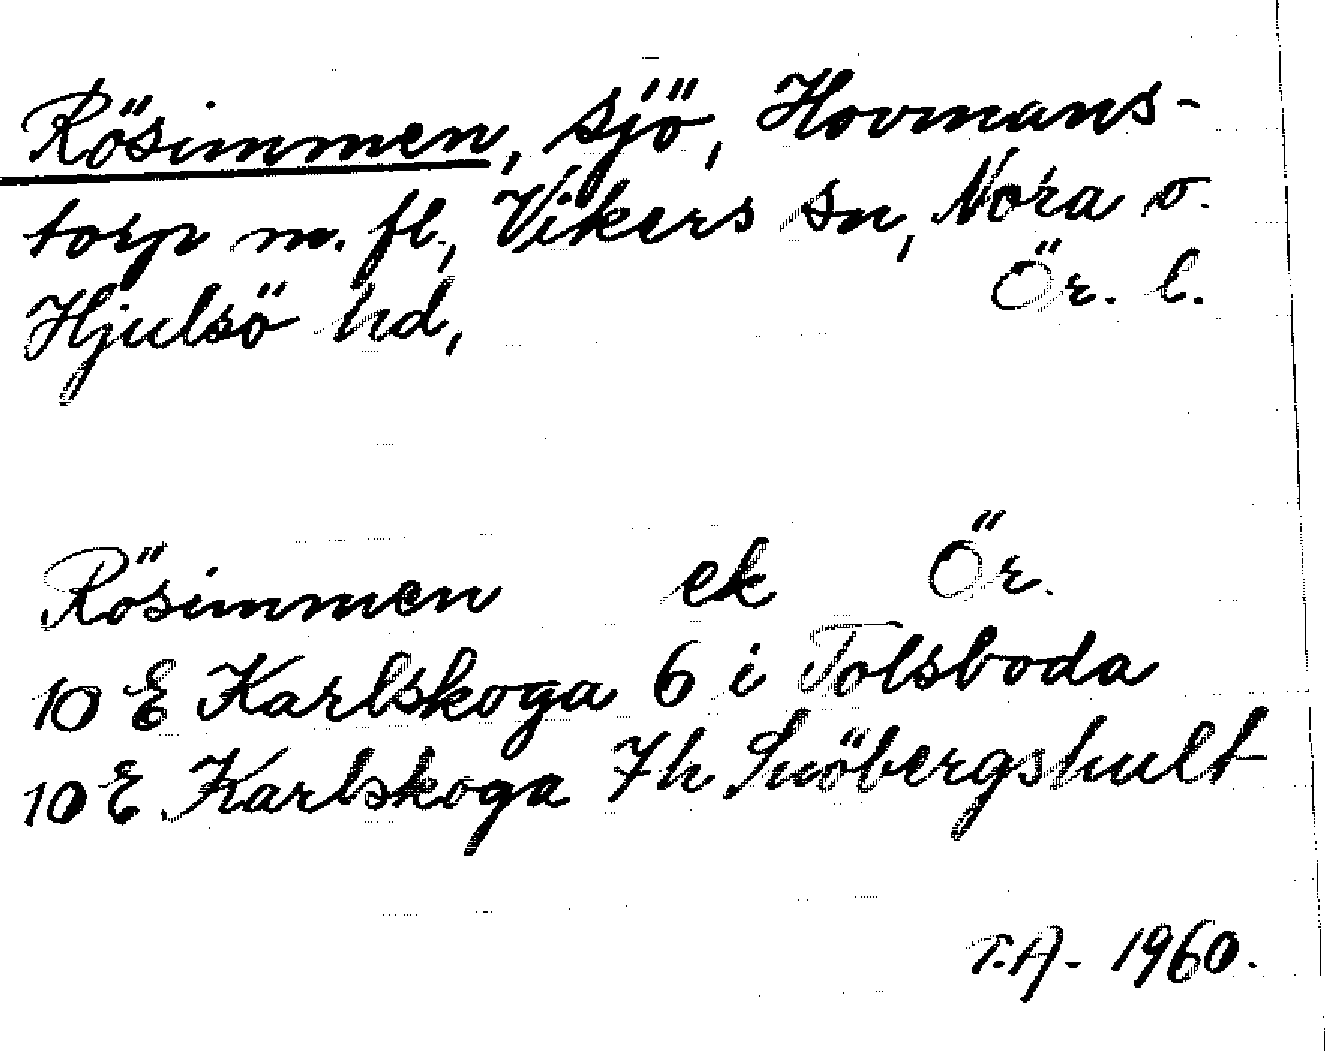 Rösimmen, sjö, Hovmans-
torp m. fl., Vikers sn, Nora o.
Hjulsö hd, Ör. l.
Rösimmen ek Ör.
10 E Karlskoga 6 i Tolsboda
10 E Karlskoga 7h Snöbergshult
T.A. 1960.